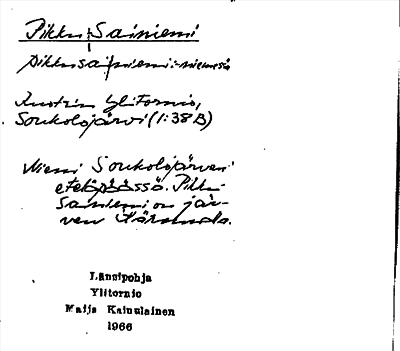 Pikku Sainiemi
Pikkusainiemi: -niemesä
Ylitornio,
Soukolojärvi (1:38 B)
Niemi Soukolojärven
eteläpäässä. Pikku
Sainiemi on jär-
ven itärannalla.
Länsipohja
Ylitornio
Maija Kainulainen
1966